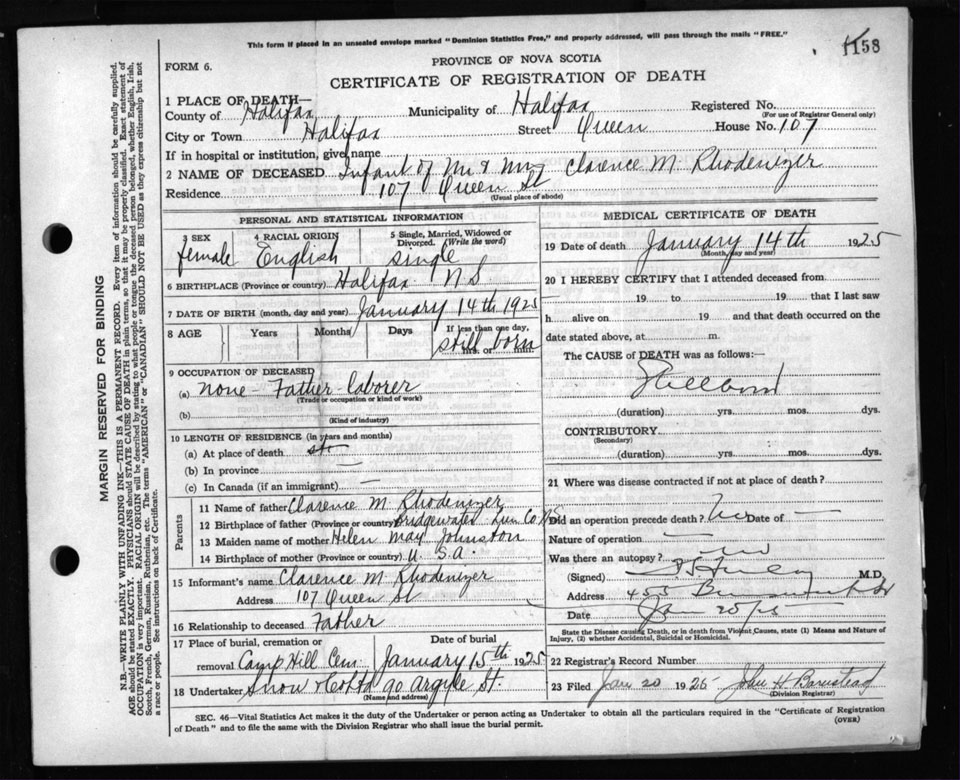 This form if placed in an unsealed envelope marked "Dominion Statistics Free," and properly addressed, will pass through the mails "FREE."
1158
FORM 6.
PROVINCE OF NOVA SCOTIA
CERTIFICATE OF REGISTRATION OF DEATH
1 PLACE OF DEATH—
County of Halifax Municipality of Halifax Registered No.
(For use of Registrar General only)
City or Town Halifax Street Queen House No. 107
If in hospital or institution, give name
2 NAME OF DECEASED Infant of Mr & Mrs Clarence M. Rhodenizer
Residence 107 Queen St
(Usual place of abode)
PERSONAL AND STATISTICAL INFORMATION
3 SEX 4 RACIAL ORIGIN 5 Single, Married, Widowed or Divorced. (Write the word)
female English single
6 BIRTHPLACE (Province or country) Halifax N S
7 DATE OF BIRTH (month, day and year) January 14th 1925
8 AGE Years Months Days If less than one day, hrs. or min.
still born
9 OCCUPATION OF DECEASED
(a) none - Father - laborer
(Trade or occupation or kind of work)
(b)
(Kind of industry)
10 LENGTH OF RESIDENCE (in years and months)
(a) At place of death
(b) In province —
(c) In Canada (if an immigrant) —
Parents
11 Name of father Clarence M. Rhodenizer
12 Birthplace of father (Province or country) Bridgewater Lun Co NS
13 Maiden name of mother Helen May Johnston
14 Birthplace of mother (Province or country) U. S. A.
15 Informant's name Clarence M. Rhodenizer
Address 107 Queen St
16 Relationship to deceased Father
17 Place of burial, cremation or removal Camp Hill Cem. Date of burial January 15th 1925
18 Undertaker Snow & Co Ltd 90 Argyle St.
(Name and address)
MEDICAL CERTIFICATE OF DEATH
19 Date of death January 14th 1925
(Month, day and year)
20 I HEREBY CERTIFY that I attended deceased from
19 to 19 that I last saw
h alive on 19 and that death occurred on the
date stated above, at m.
The CAUSE of DEATH was as follows:
Stillborn
(duration) yrs. mos. dys.
CONTRIBUTORY
(Secondary)
(duration) yrs. mos. dys.
21 Where was disease contracted if not at place of death?
Did an operation precede death? No Date of —
Nature of operation —
Was there an autopsy? no
(Signed) M.D.
Address 455
Date Jan 20/25
State the Disease causing Death, or in death from Violent Causes, state (1) Means and Nature of
Injury, (2) whether Accidental, Suicidal or Homicidal.
22 Registrar's Record Number
23 Filed Jan 20 1925 John H Barnstead
(Division Registrar)
SEC. 46—Vital Statistics Act makes it the duty of the Undertaker or person acting as Undertaker to obtain all the particulars required in the "Certificate of Registration
of Death" and to file the same with the Division Registrar who shall issue the burial permit.
(OVER)
MARGIN RESERVED FOR BINDING
N.B.—WRITE PLAINLY WITH UNFADING INK—THIS IS A PERMANENT RECORD. Every item of information should be carefully supplied.
AGE should be stated EXACTLY. PHYSICIANS should STATE CAUSE OF DEATH in plain terms, so that it may be properly classified. Exact statement of
OCCUPATION is very important. RACIAL ORIGIN will be described by stating to what people or tongue the deceased person belonged, whether English, Irish,
Scotch, French, German, Russian, Ruthenian, etc. The terms "AMERICAN" or "CANADIAN" SHOULD NOT BE USED as they express citizenship but not
a race or people. See instructions on back of Certificate.